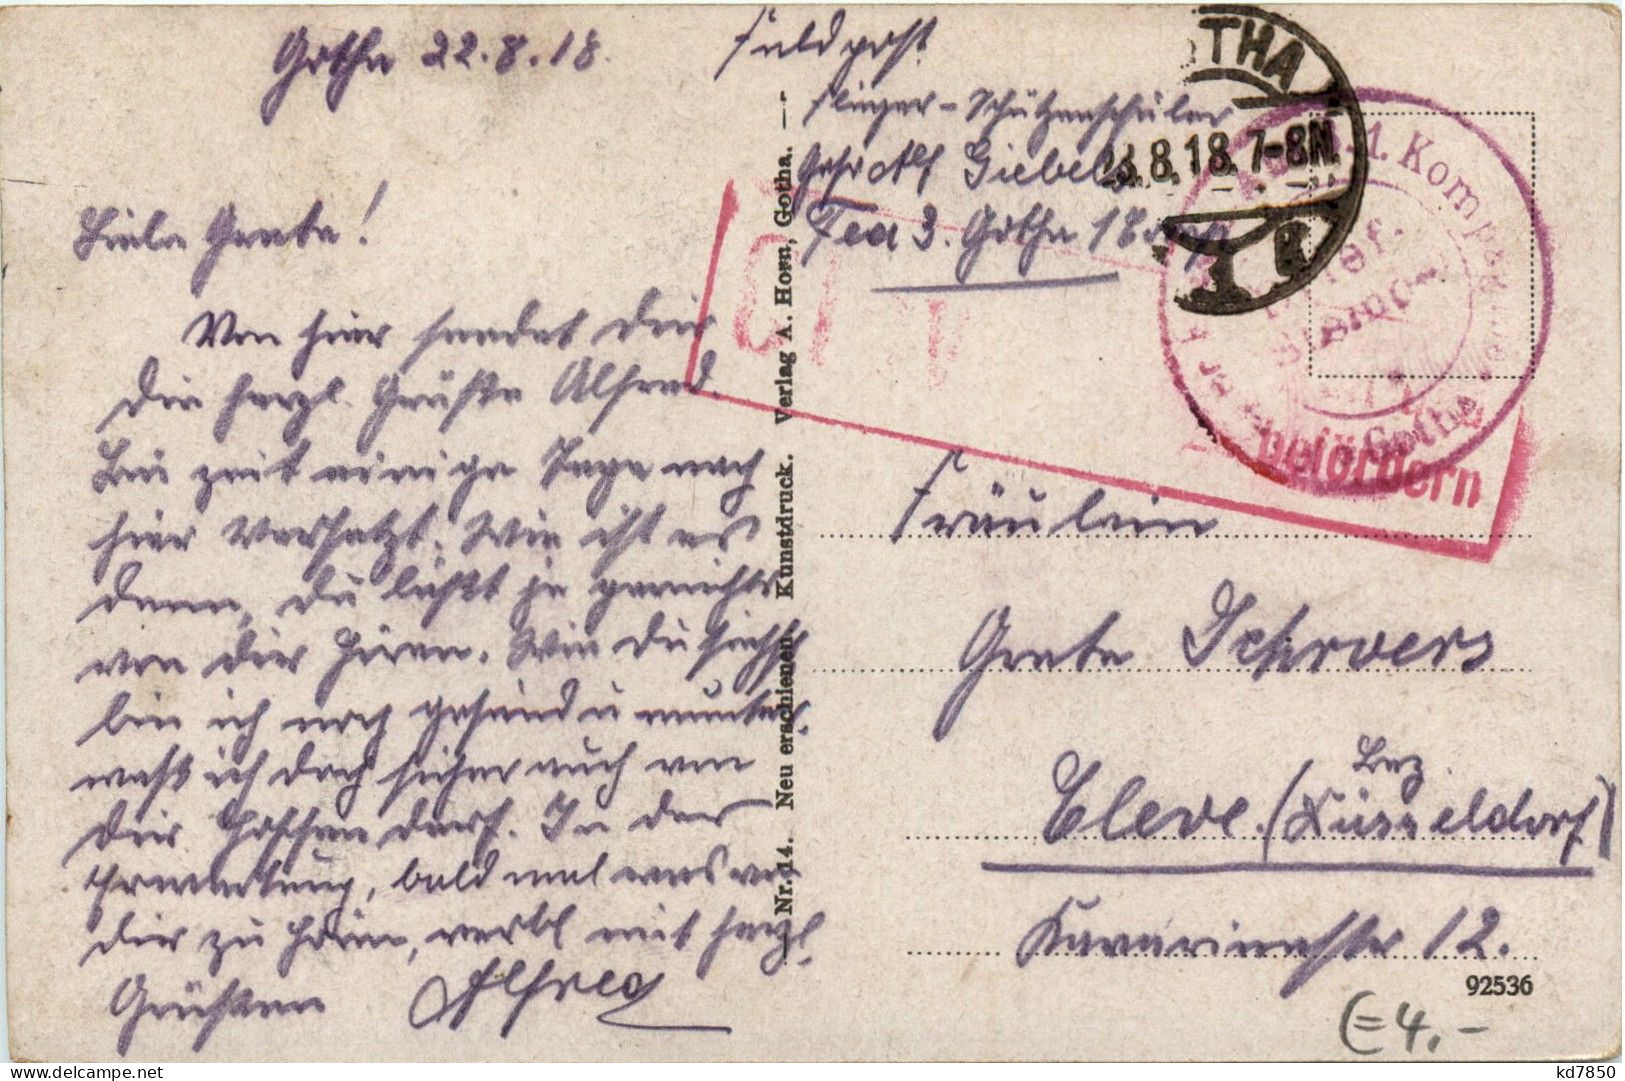 Gotha 22.8.18.
Liebe Grete!
Von hier sendet Dir
die herzl. Grüße Alfred.
Bin zeit einige Tage nach
hier versetzt. Wie ist es
denn, Du läßt ja garnichts
von Dir hören. Wie Du siehst
bin ich noch gesund u munter,
was ich doch sicher auch von
Dir hoffen darf. In der
Erwartung, bald mal was von
Dir zu hören, verbl mit herzl.
Grüßen Alfred
Nr. 14. Neu erschienen Kunstdruck. Verlag A. Horn, Gotha.
Feldpost
Flieger-Schützenschüler
Gefr Alf Giebels
Fea 3. Gotha 18
THA
8.18.7-8N.
1. Kompagnie
Gotha
befördern
Fräulein
Grete Schroers
Cleve. (Bez Düsseldorf)
Kavarinerstr 12.
92536
(=4,-
kd7850